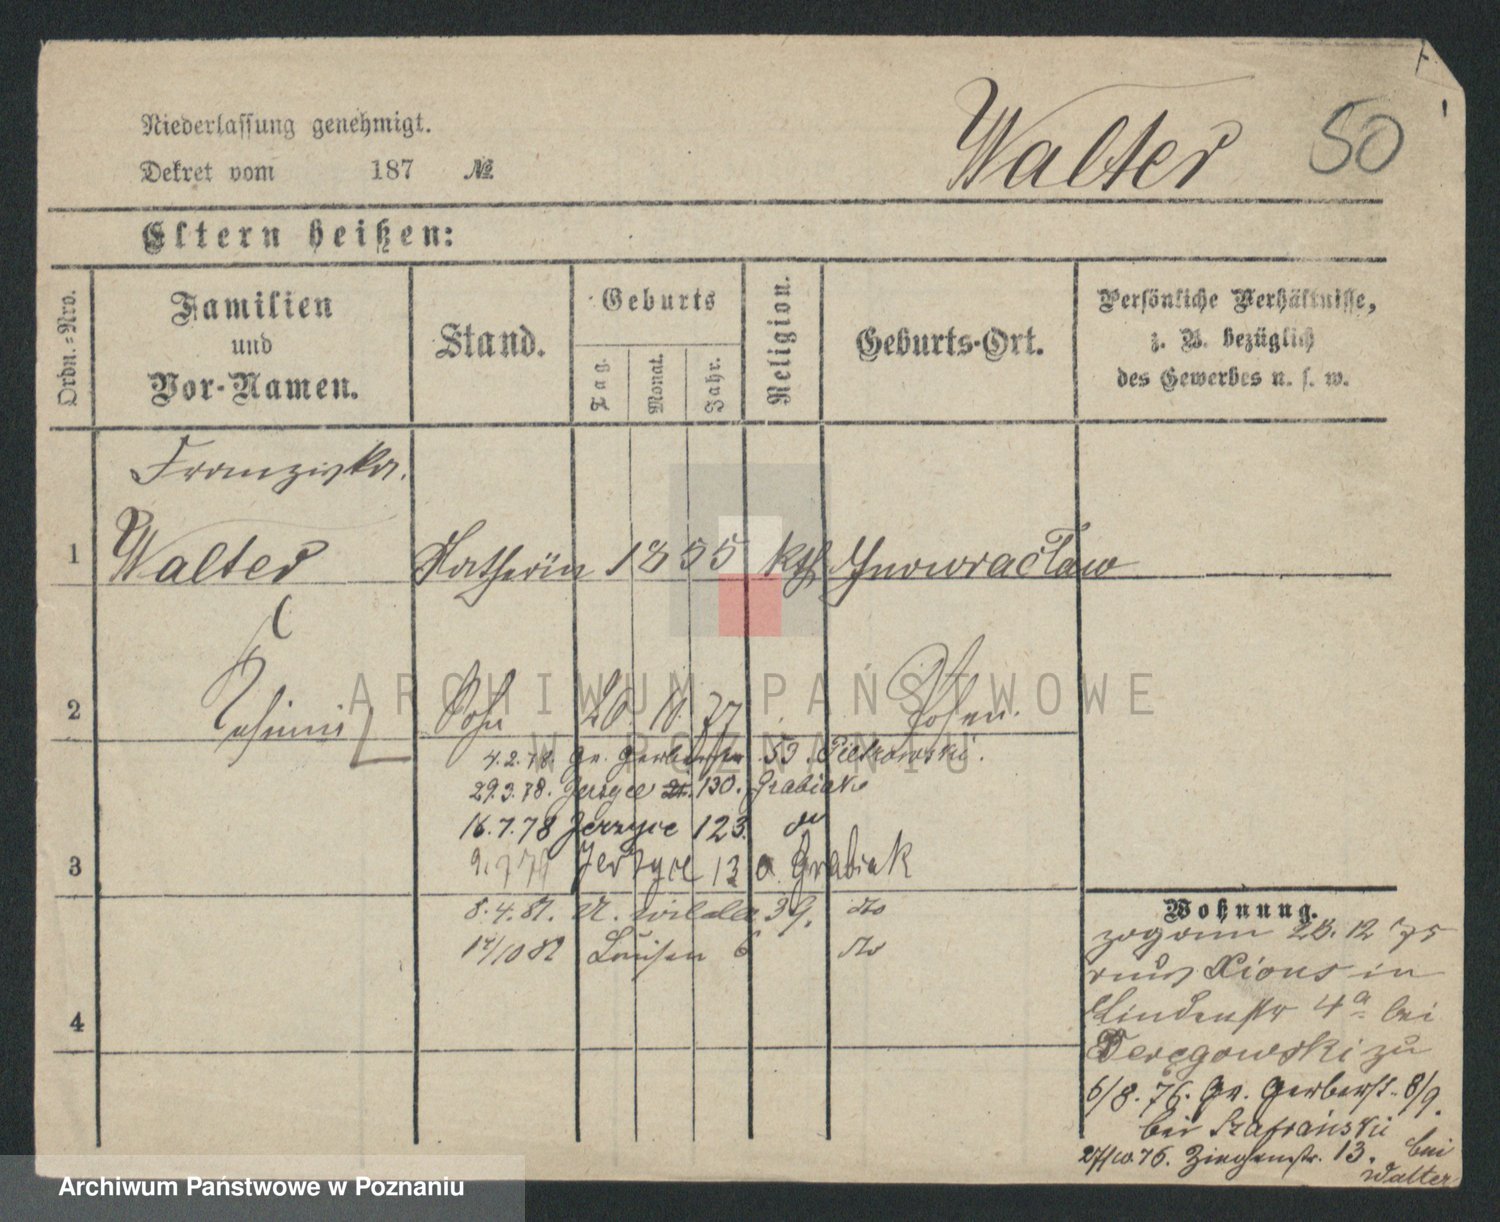 Niederlassung genehmigt.
Dekret vom 187 №
Walter 50
Eltern heißen:
Ordn.=Nro.
Familien
und
Vor-Namen.
Stand.
Geburts
Tag.
Monat.
Jahr.
Religion.
Geburts-Ort.
Persönliche Verhältnisse,
z. B. bezüglich
des Gewerbes u. s. w.
Franziska
1 Walter 1855 kth Ynowracław
2 Sohn 20 11. 77 Posen.
4.2.78. Gr. Gerberstr 53. Pietrowski.
29.3.78. Jersyce 130. Grabiak
16.7.78 Jerzyce 123. do
3 Jerzyce 13 a. Grabiak
8.4.81. U. Wilda 39. do
17/10 82 Louisen 6 do
4
Wohnung.
zogann 28. 12 75
aus Xions in
Lindenstr 4a bei
Deręgowski zu
6/8. 76. Gr. Gerberst. 8/9.
bei Szafrański
27/10.76. Ziegenstr. 13. bei
Walter
ARCHIWUM PAŃSTWOWE
W POZNANIU
Archiwum Państwowe w Poznaniu